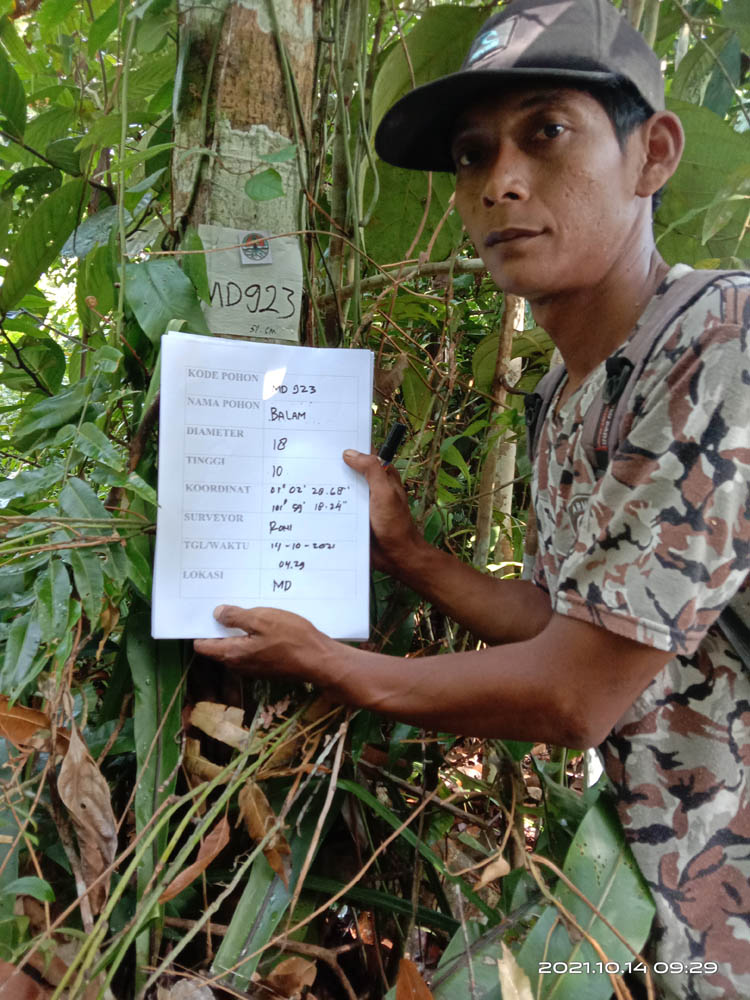 MD923
54 CM
KODE POHON MD 923
NAMA POHON BALAM
DIAMETER 18
TINGGI 10
KOORDINAT 01° 02' 20.68"
101° 59' 18.24"
SURVEYOR RONI
TGL/WAKTU 14-10-2021
04.29
LOKASI MD
2021.10.14 09:29